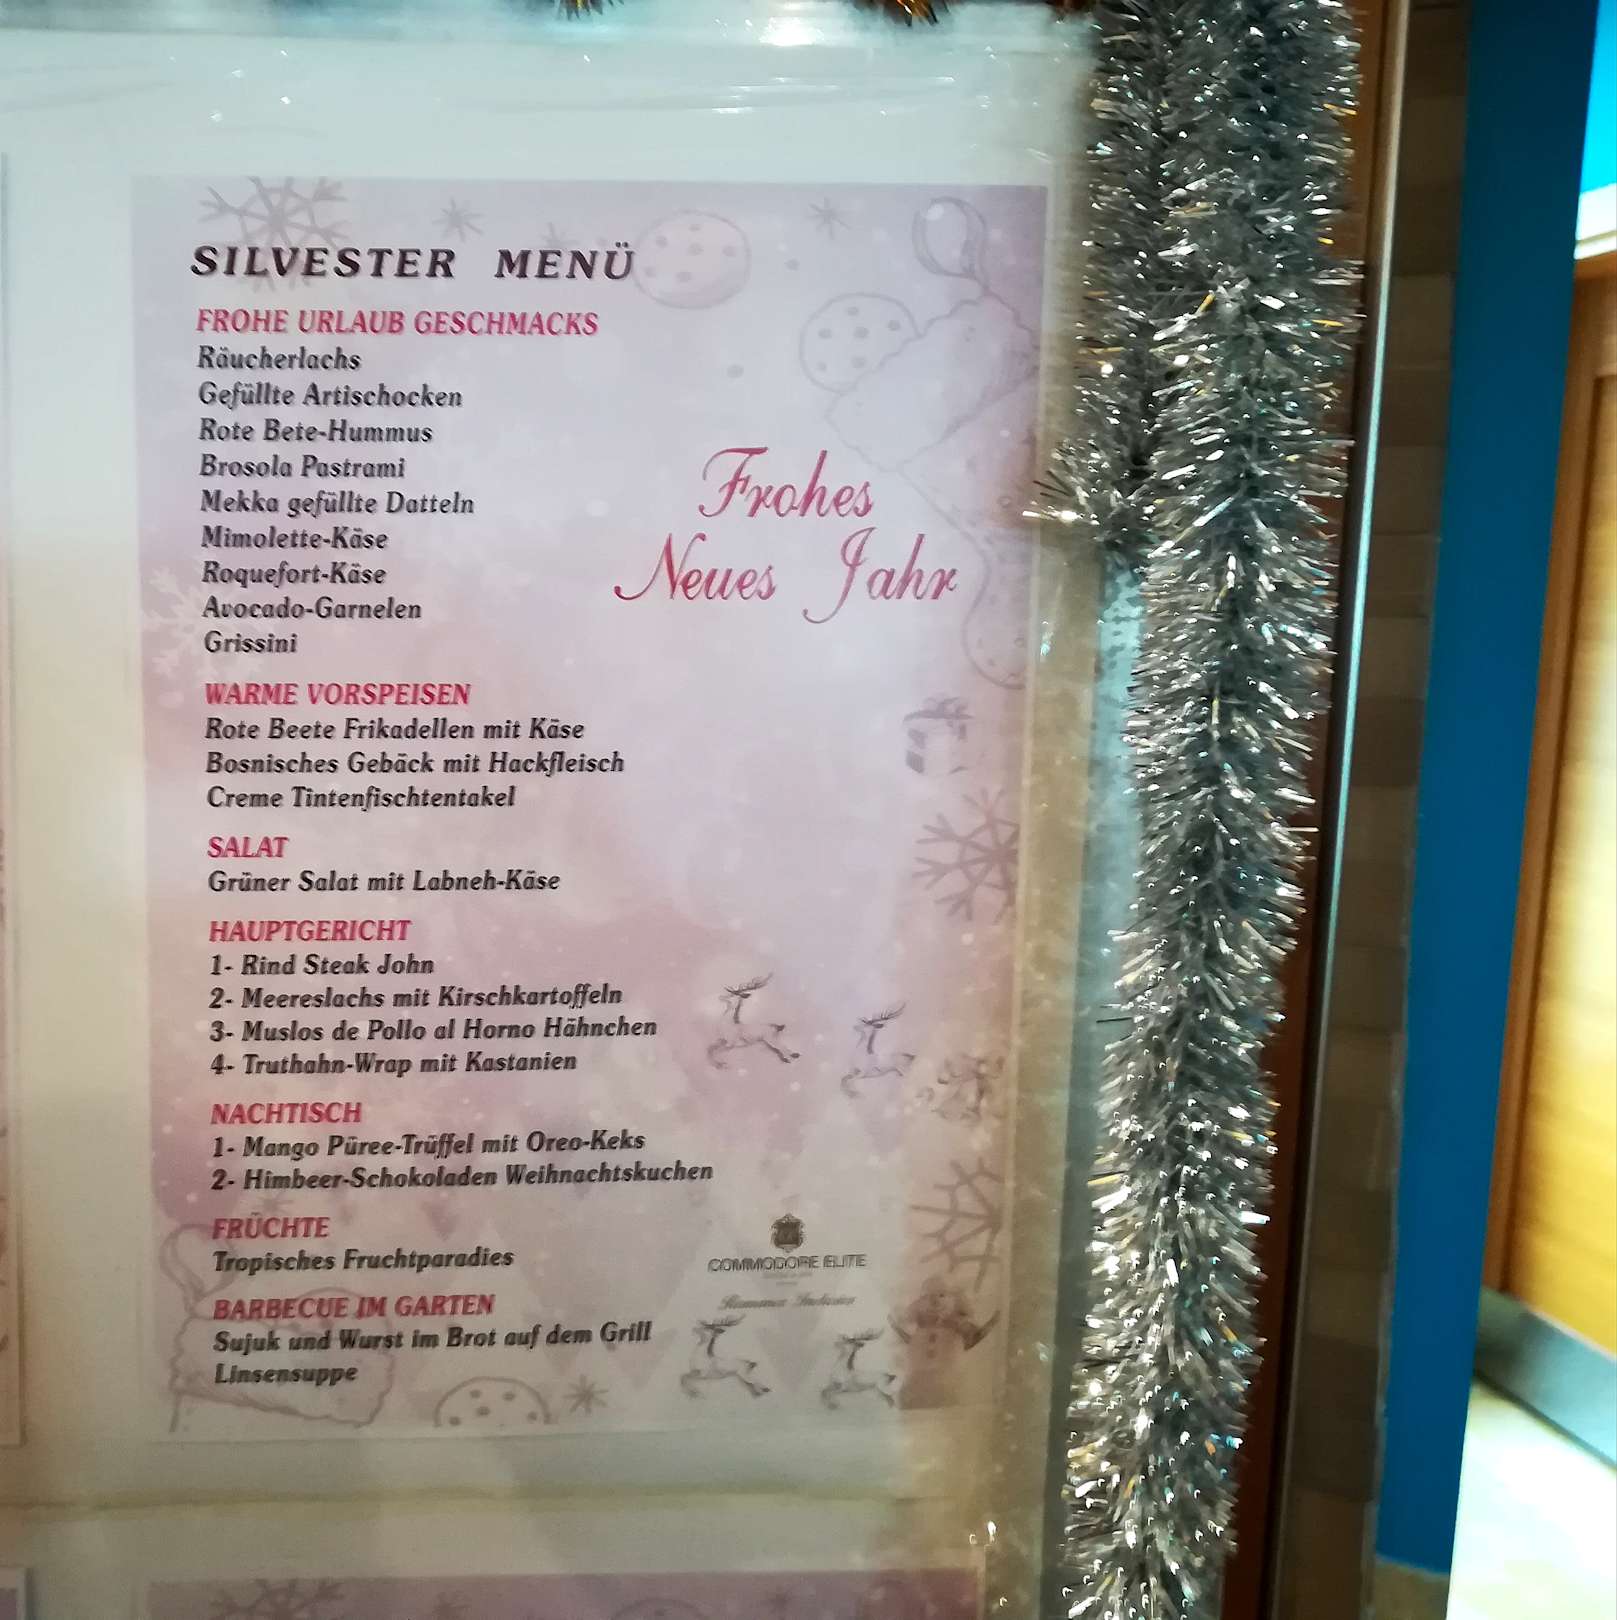 SILVESTER MENÜ
FROHE URLAUB GESCHMACKS
Räucherlachs
Gefüllte Artischocken
Rote Bete-Hummus
Brosola Pastrami
Mekka gefüllte Datteln
Mimolette-Käse
Roquefort-Käse
Avocado-Garnelen
Grissini
Frohes
Neues Jahr
WARME VORSPEISEN
Rote Beete Frikadellen mit Käse
Bosnisches Gebäck mit Hackfleisch
Creme Tintenfischtentakel
SALAT
Grüner Salat mit Labneh-Käse
HAUPTGERICHT
1- Rind Steak John
2- Meereslachs mit Kirschkartoffeln
3- Muslos de Pollo al Horno Hähnchen
4- Truthahn-Wrap mit Kastanien
NACHTISCH
1- Mango Püree-Trüffel mit Oreo-Keks
2- Himbeer-Schokoladen Weihnachtskuchen
FRÜCHTE
Tropisches Fruchtparadies
BARBECUE IM GARTEN
Sujuk und Wurst im Brot auf dem Grill
Linsensuppe
COMMODORE ELITE